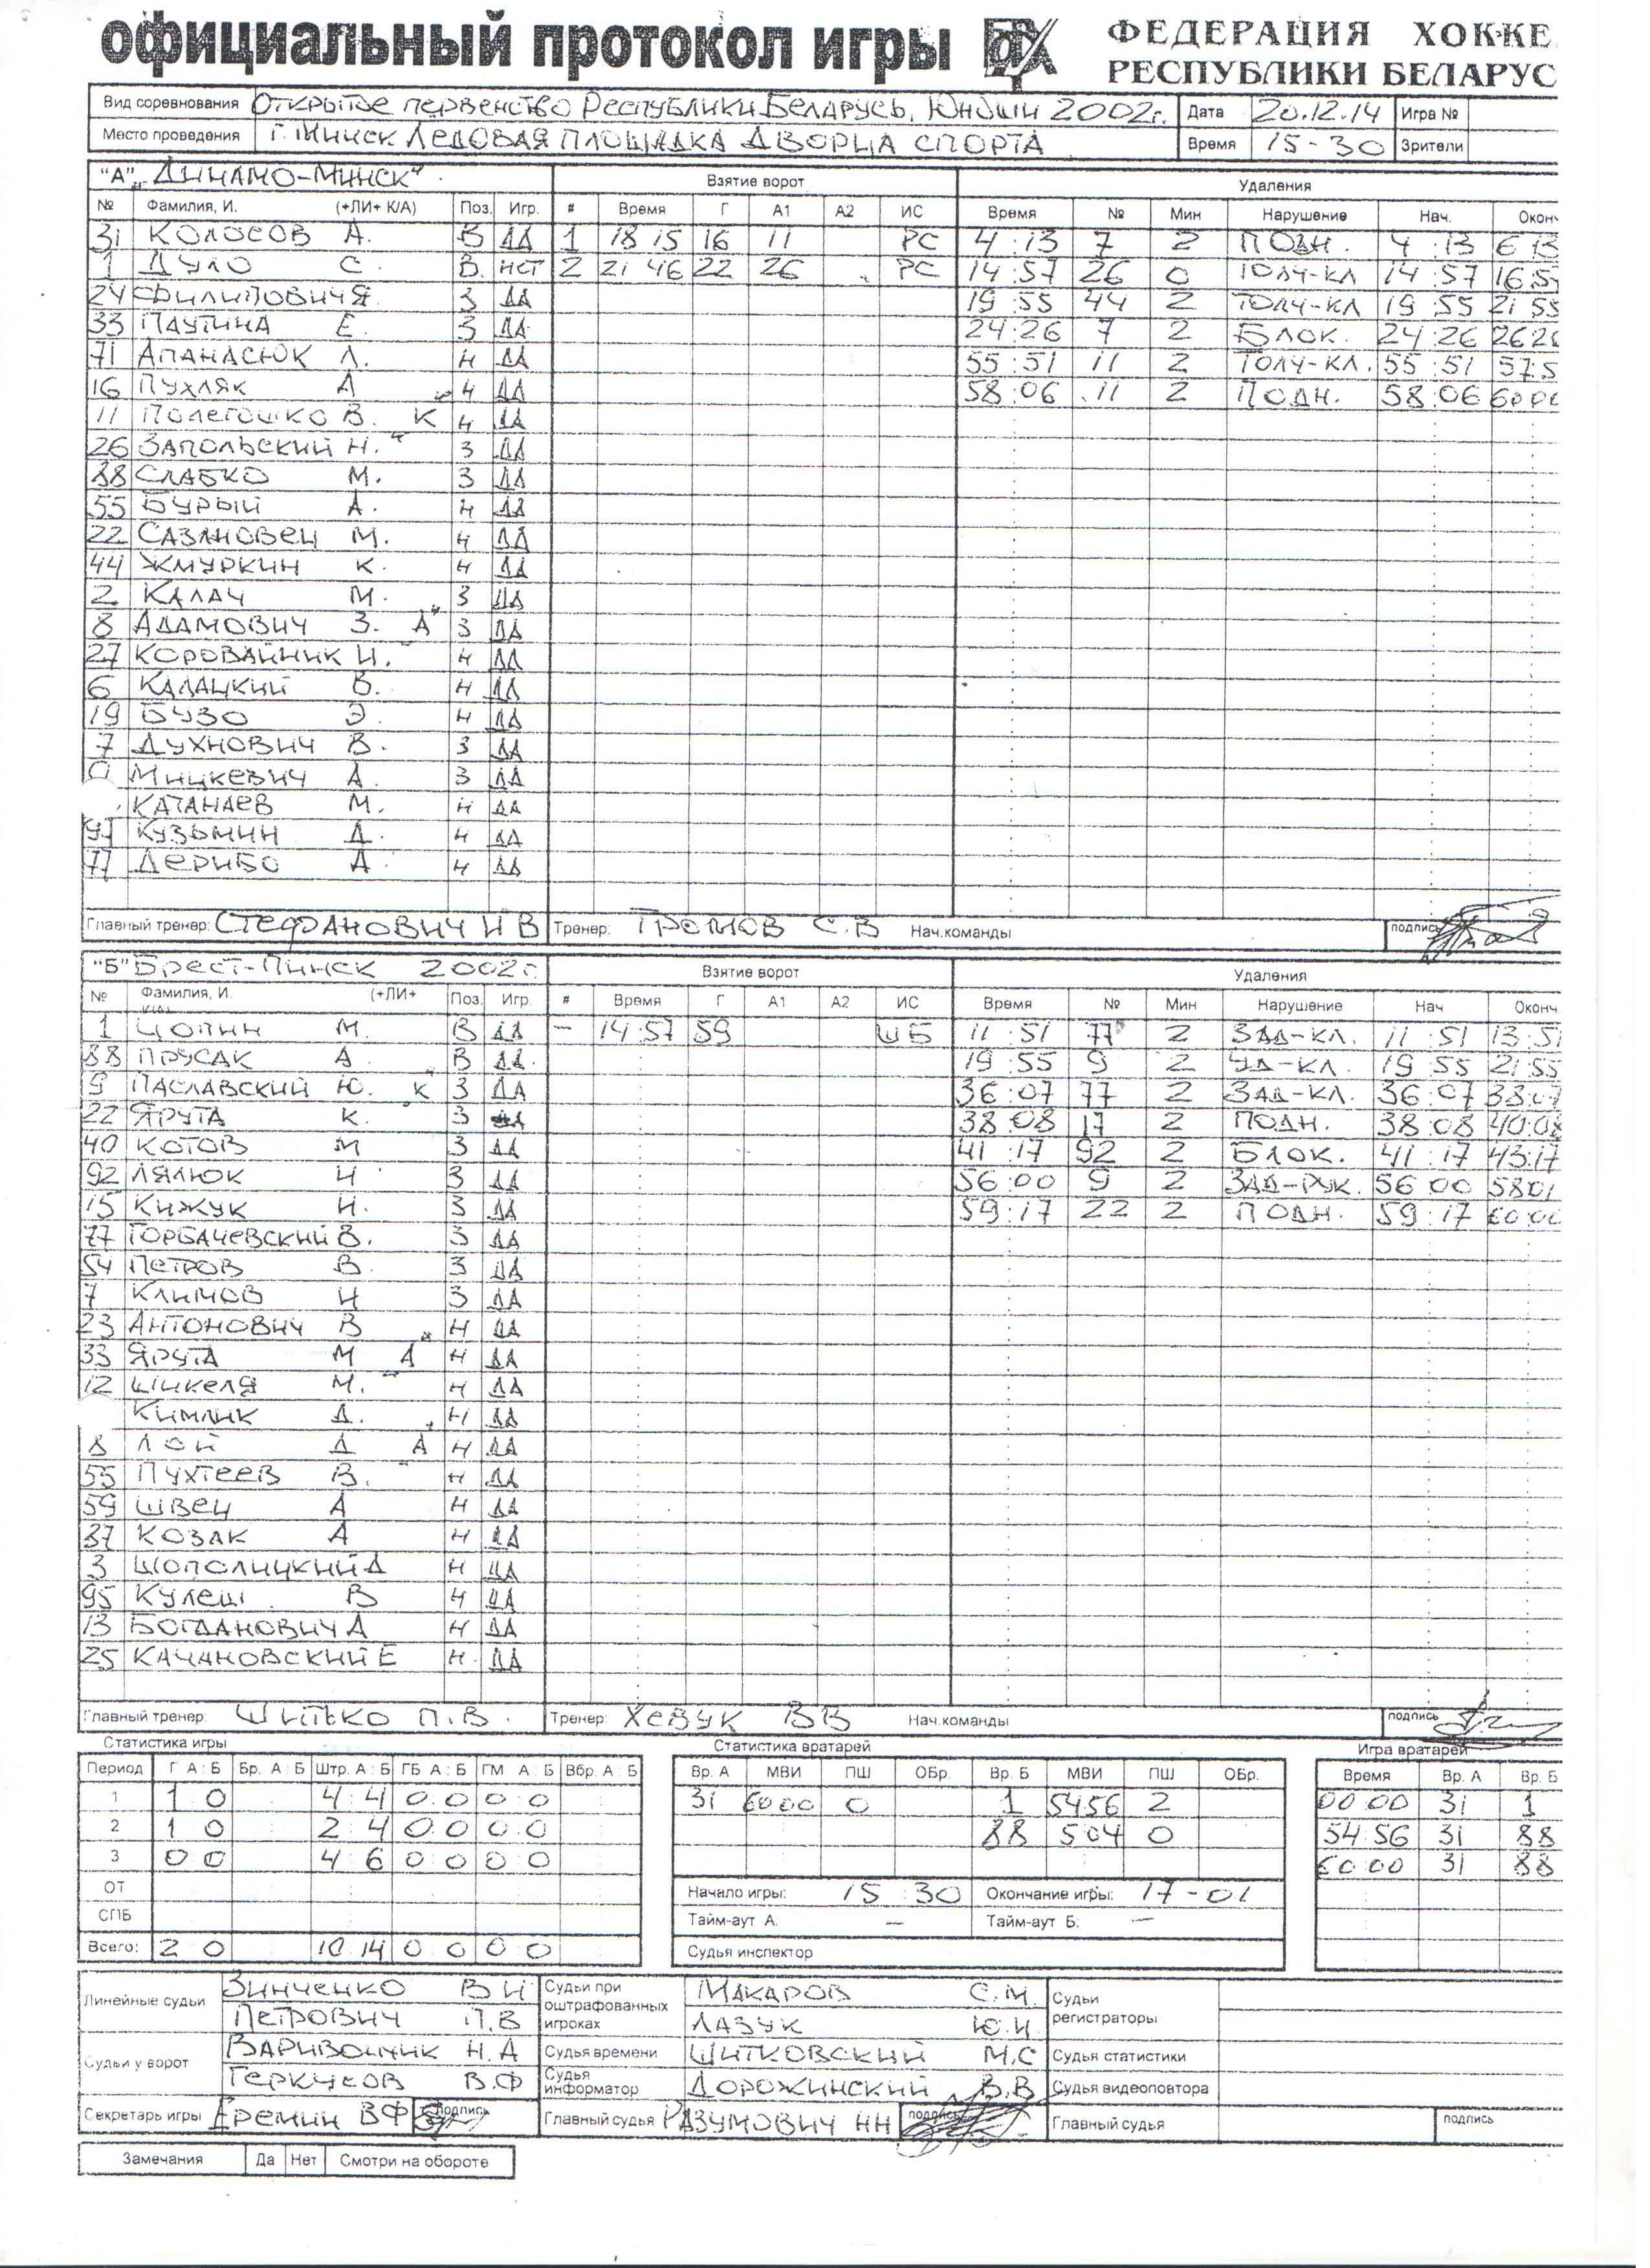 официальный протокол игры ФЕДЕРАЦИЯ ХОККЕ
РЕСПУБЛИКИ БЕЛАРУС
Вид соревнования Открытое первенство Республики Беларусь, Юноши 2002г. Дата 20.12.14 Игра №
Место проведения г. Минск Ледовая площадка Дворца спорта Время 15-30 Зрители
"А" „Динамо-Минск" Взятие ворот Удаления
№ Фамилия, И. (+ЛИ+ К/А) Поз. Игр. # Время Г А1 А2 ИС Время № Мин Нарушение Нач. Оконч
31 Колосов А. В ДА 1 18 15 16 11 РС 4:13 7 2 Подн. 4:13 6 13
1 Дуло С. В. нет 2 21 46 22 26 РС 14:57 26 0 Толч-кл 14:57 16:57
24 Филипович Я. З ДА 19 55 44 2 Толч-кл 19 55 21 55
33 Паутина Е. З ДА 24:26 7 2 Блок. 24:26 26 26
71 Апанасюк Л. Н ДА 55:51 11 2 Толч-кл. 55:51 57:5
16 Пухляк А Н ДА 58:06 11 2 Подн. 58:06 60 00
11 Полегошко В. „К" Н ДА
26 Запольский Н. З ДА
88 Слабко М. З ДА
55 Бурый А. Н ДА
22 Сазановец М. Н ДА
44 Жмуркин К. Н ДА
2 Калач М. З ДА
8 Адамович З. „А" З ДА
27 Коровайник И. Н ДА
6 Калацкий В. Н ДА
19 Бузо Э. Н ДА
7 Духнович В. З ДА
Мицкевич А. З ДА
Катанаев М. Н ДА
91 Кузьмин Д. Н ДА
77 Дерибо А. Н ДА
Главный тренер: Стефанович И В Тренер: Громов С.В Нач.команды подпись
"Б" Брест-Пинск 2002г. Взятие ворот Удаления
№ Фамилия, И. (+ЛИ+ Поз. Игр. # Время Г А1 А2 ИС Время № Мин Нарушение Нач Оконч
1 Цопин М. В ДА – 14:57 59 ШБ 11:51 77 2 Зад-кл. 11:51 13:51
88 Прусак А. В ДА. 19:55 9 2 Уд-кл. 19 55 21:55
9 Паславский Ю. „К" З ДА 36:07 77 2 Зад-кл. 36:07 38:07
22 Ярута К. З ДА 38:08 17 2 Подн. 38:08 40:08
40 Котов М З ДА 41:17 92 2 Блок. 41:17 43:17
92 Лялюк И З ДА 56:00 9 2 Зад-рук. 56 00 58 01
15 Кижук И. З ДА 59:17 22 2 Подн. 59:17 60:00
77 Горбачевский В. З ДА
54 Петров В. З ДА
7 Климов И З ДА
23 Антонович В Н ДА
33 Ярута М „А" Н ДА
12 Шикеля М. Н ДА
Кимлик Д. Н ДА
8 Лой Д „А" Н ДА
55 Пухтеев В. Н ДА
59 Швец А Н ДА
37 Козак А Н ДА
3 Шополицкий А Н ДА
95 Кулеш В Н ДА
13 Богданович А Н ДА
25 Качановский Е Н ДА
Главный тренер: Шитько П.В. Тренер: Хевук ВВ Нач.команды подпись
Статистика игры Статистика вратарей Игра вратарей
Период Г А:Б Бр. А:Б Штр. А:Б ГБ А:Б ГМ А:Б Вбр. А:Б Вр. А МВИ ПШ ОБр. Вр. Б МВИ ПШ ОБр. Время Вр. А Вр. Б
1 1 0 4 4 0 0 0 0 31 60 00 0 1 54 56 2 00 00 31 1
2 1 0 2 4 0 0 0 0 88 5 04 0 54:56 31 88
3 0 0 4 6 0 0 0 0 60 00 31 88
ОТ Начало игры: 15:30 Окончание игры: 17-01
СПБ Тайм-аут А. – Тайм-аут Б: –
Всего: 2 0 10 14 0 0 0 0 Судья инспектор
Линейные судьи Зинченко В И Судьи при оштрафованных игроках Макаров С.М. Судьи регистраторы
Петрович П.В Лазук Ю.И.
Судьи у ворот Варивончик Н.А Судья времени Шитковский М.С Судья статистики
Геркусов В.Ф Судья информатор Дорожинский В.В Судья видеоповтора
Секретарь игры Еремин ВФ подпись Главный судья Разумович НН подпись Главный судья подпись
Замечания Да Нет Смотри на обороте